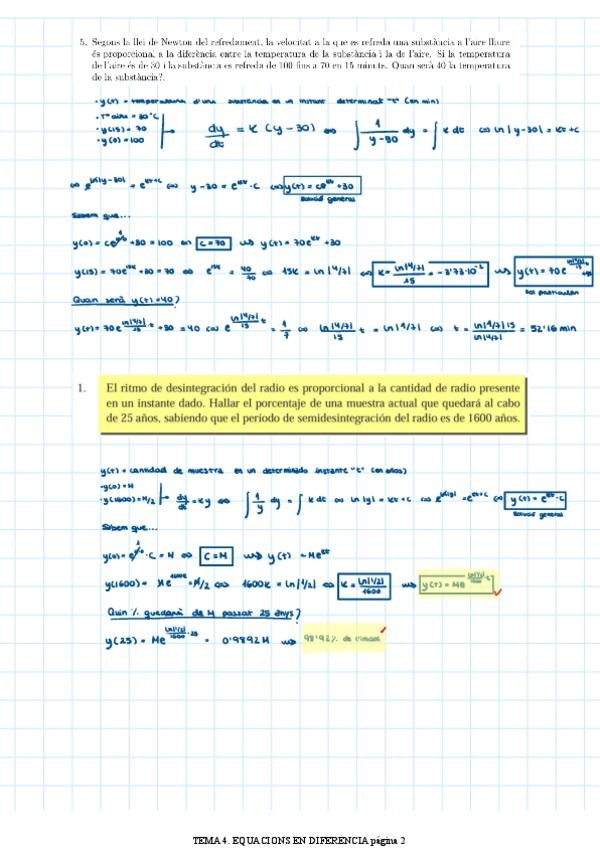 5. Segons la llei de Newton del refredament, la velocitat a la que es refreda una substància a l'aire lliure
és proporcional a la diferència entre la temperatura de la substància i la de l'aire. Si la temperatura
de l'aire és de 30 i la substànca es refreda de 100 fins a 70 en 15 minuts. Quan serà 40 la temperatura
de la substància?.
· y(t) = temperatura d'una substància en un instant determinat "t" (en min)
· Tª aire = 30°C
· y(15) = 70
· y(0) = 100
dy/dt = K (y-30) ⇔ ∫ 1/(y-30) dy = ∫ K dt ⇔ ln|y-30| = Kt+C
⇔ e^(ln|y-30|) = e^(Kt+C) ⇔ y-30 = e^(Kt)·C ⇔ y(t) = Ce^(Kt) +30
Solució general
Sabem que...
y(0) = Ce^(K·0) +30 = 100 ⇔ C = 70 ⇒ y(t) = 70e^(Kt) +30
y(15) = 70e^(15K) +30 = 70 ⇔ e^(15K) = 40/70 ⇔ 15K = ln|4/7| ⇔ K = ln|4/7|/15 = -3'73·10^-2 ⇒ y(t) = 70e^(ln|4/7|/15 t)
Sol particular
Quan serà y(t)=40?
y(t) = 70e^(ln|4/7|/15 t) +30 = 40 ⇔ e^(ln|4/7|/15 t) = 1/7 ⇔ ln|4/7|/15 t = ln|1/7| ⇔ t = ln|1/7|15/ln|4/7| = 52'16 min
1. El ritmo de desintegración del radio es proporcional a la cantidad de radio presente
en un instante dado. Hallar el porcentaje de una muestra actual que quedará al cabo
de 25 años, sabiendo que el período de semidesintegración del radio es de 1600 años.
y(t) = cantidad de muestra en un determinado instante "t" (en años)
· y(0) = M
· y(1600) = M/2
dy/dt = Ky ⇔ ∫ 1/y dy = ∫ K dt ⇔ ln|y| = Kt+C ⇔ e^(ln|y|) = e^(Kt+C) ⇔ y(t) = e^(Kt)·C
Solució general
Sabem que...
y(0) = e^(K·0)·C = M ⇔ C = M ⇒ y(t) = Me^(Kt)
y(1600) = Me^(1600K) = M/2 ⇔ 1600K = ln|1/2| ⇔ K = ln|1/2|/1600 ⇒ y(t) = Me^(ln|1/2|/1600 t)
Quin % quedarà de M passat 25 anys?
y(25) = Me^(ln|1/2|/1600 · 25) = 0'9892M ⇒ 98'92% de
TEMA 4. EQUACIONS EN DIFERENCIA página 2